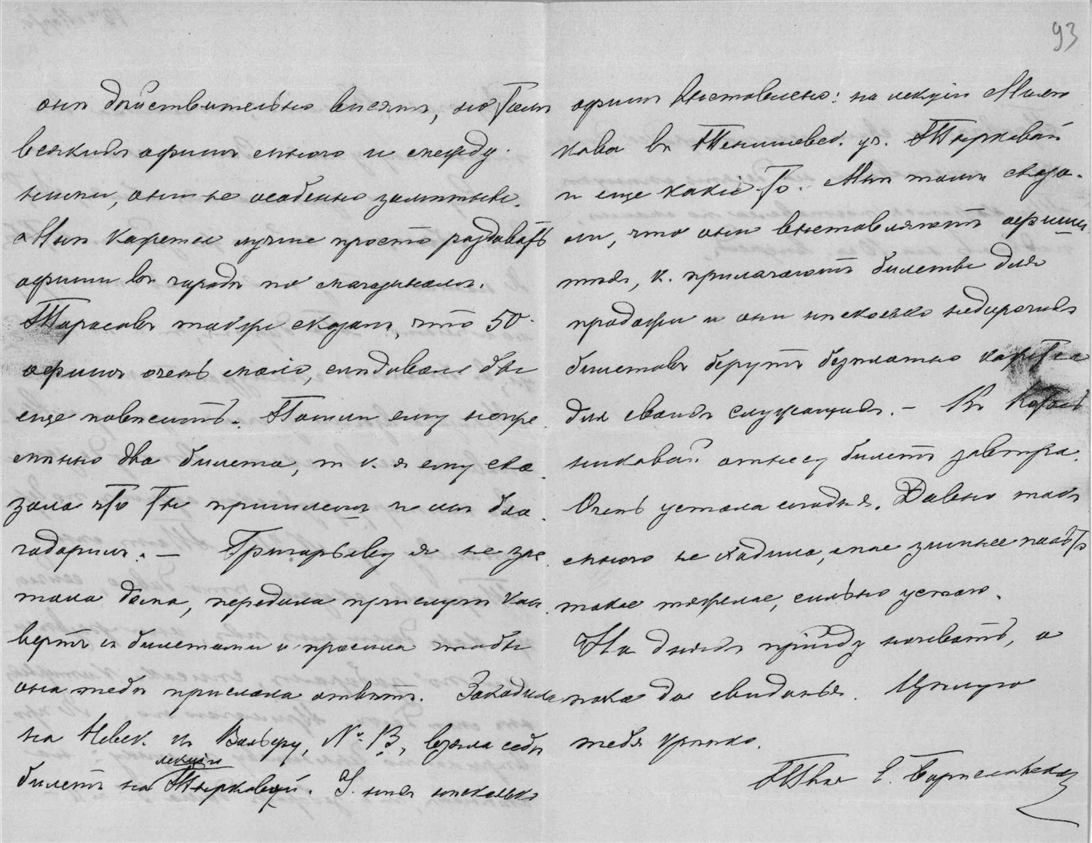 93
они действительно висятъ, но тамъ
всякихъ афишъ много и между
ними, они не особенно замѣтны.
Мнѣ кажется лучше просто раздавать
афиши въ городѣ по магазинамъ.
Тарасовъ также сказалъ, что 50
афишъ очень мало, слѣдовало бы
еще повѣсить. Пошли ему непре
мѣнно два билета, т. к. я ему ска
зала что ты пришлешь и мы бла
годаримъ. — Григорьеву я не за
стала дома, передала прислугѣ кон
вертъ съ билетами и просила чтобы
она тебѣ прислала отвѣтъ. Заходила
на Невск. къ Вольфу, № 13, взяла себѣ
билетъ на лекцію Тырковой. У нихъ нѣсколько
афишъ выставлено: на лекціи Милю
кова въ Тенишевск. уч. Тырковой
и еще какіе то. Мнѣ тамъ сказа-
ли, что они выставляютъ афиши
тѣмъ, к. прилагаютъ билеты для
продажи и они нѣсколько недорогихъ
билетовъ берутъ безплатно
для своихъ служащихъ. — Къ
никовой отнесу билетъ завтра.
Очень устала сегодня. Давно такъ
много не ходила, мое зимнее пальто
такое тяжелое, сильно устаю.
На дняхъ прійду ночевать, а
пока до свиданья. Цѣлую
тебя крѣпко.
Твоя Е.